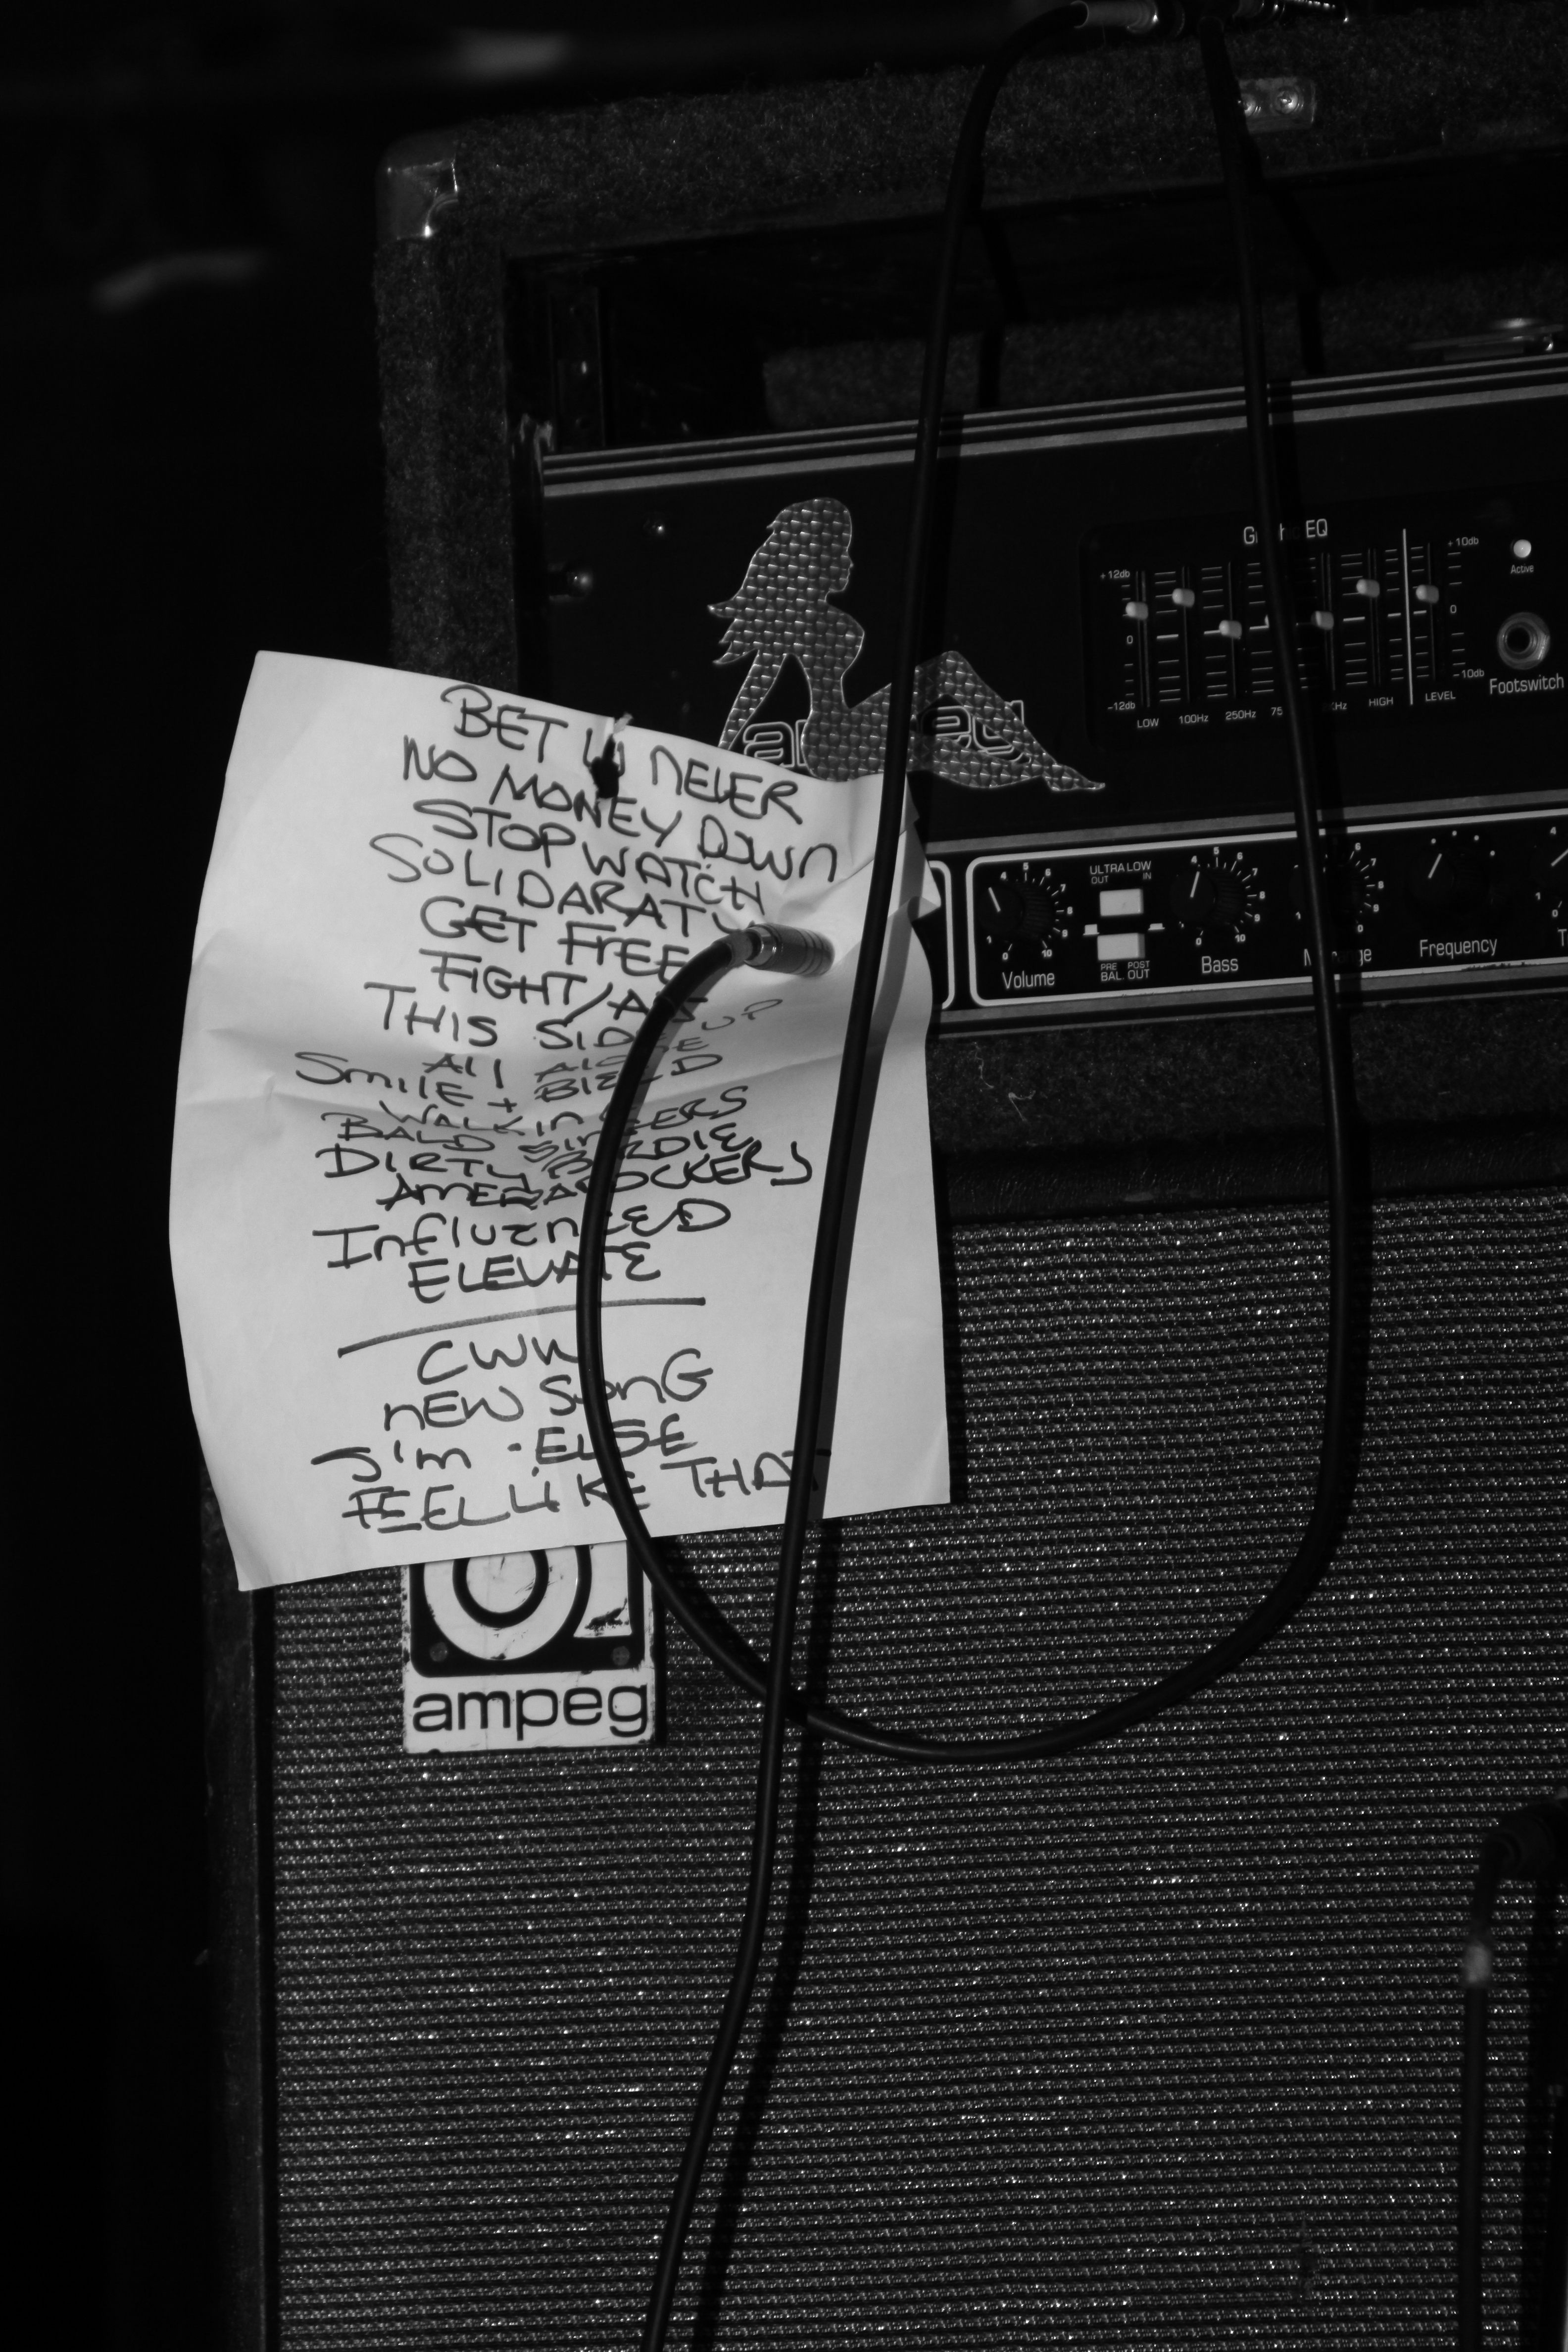 BET U NEVER
NO MONEY DOWN
STOP WATCH
SOLIDARATY
GET FREE
FIGHT/
THIS SIDE UP
All
Smile + BlEED
WALKIN
BALD SINGERS
DIRTY BIRDIE
AMERAROCKERS
InfluenCED
ELEVATE
CWW
nEW SonG
I'm ELSE
FEEL LIKE THAT
ampeg
ampeg
Graphic EQ
+12db
0
-12db
LOW
100Hz
250Hz
HIGH
LEVEL
+10db
0
-10db
Active
Footswitch
Volume
ULTRA LOW
OUT IN
PRE POST
BAL OUT
Bass
Midrange
Frequency